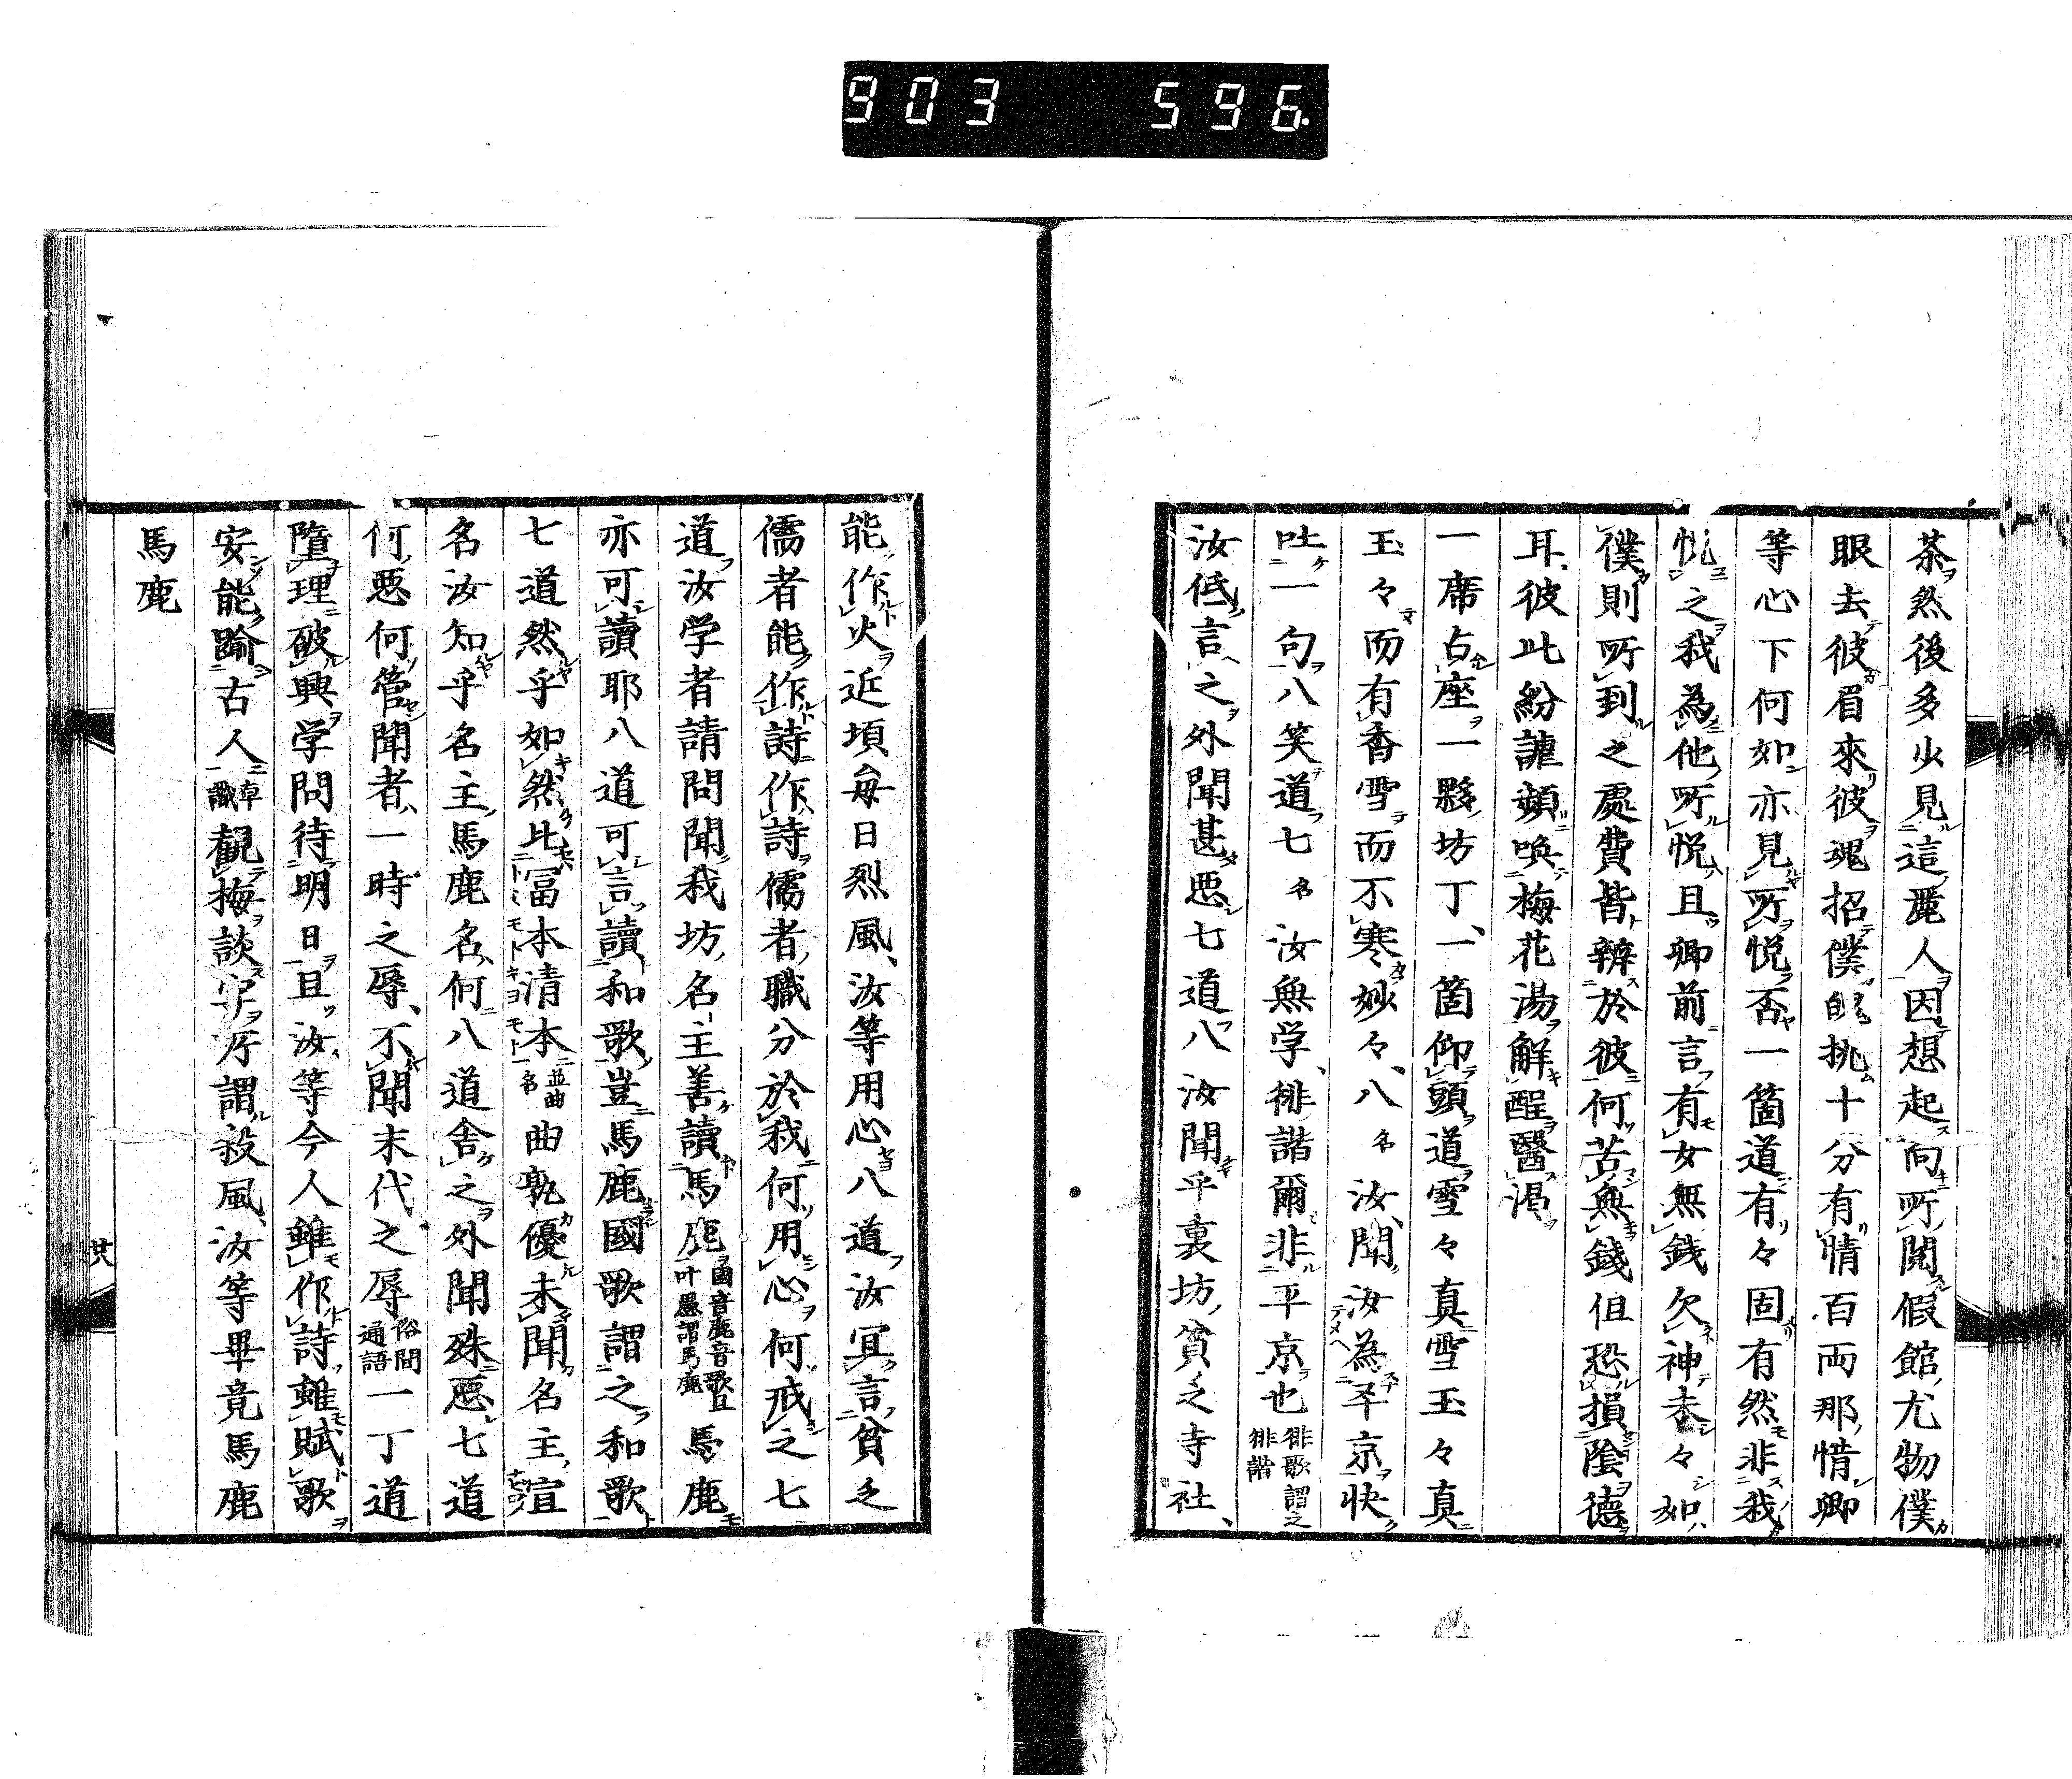 903 596.
茶然後多少見這麗人因想起向所閲假館尤物僕
眼去彼眉來彼魂招僕魄挑十分有情百両那惜卿
等心下何如亦見所悦否一箇道有々固有然非我
悦之我為他所悦且卿前言有女無銭欠神奉々如
僕則所到之處費皆辨於彼何苦無錢但恐損陰德
耳彼此紛謔頻喚梅花湯解酲醫渇
一席占座一夥坊丁一箇仰頭道雪々真雪玉々真
玉々而有香雪而不寒妙々八名汝聞汝為平京快
吐一句八笑道七名汝無学徘諧爾非平京也徘歌謂之徘諧
汝低言之外聞甚悪七道八汝聞乎裏坊貧乏寺社
能作火近頃毎日烈風汝等用心八道汝冥言貧乏
儒者能作詩作詩儒者職分於我何用心何戒之七
道汝学者請問聞我坊名主善讀馬鹿國音鹿音歌且叶愚謂馬鹿馬鹿
亦可讀耶八道可言讀和歌豈馬鹿國歌謂之和歌
七道然乎如然比冨本清本並曲名曲孰優未聞名主宣
名汝知乎名主馬鹿名何八道舎之外聞殊悪七道
何悪何管聞者一時之辱不聞末代之辱俗間通語一丁道
墮理破興学問待明日且汝等今人雖作詩雖賦歌
安能踰古人卓識観梅談字所謂殺風汝等畢竟馬鹿
馬鹿
廿八